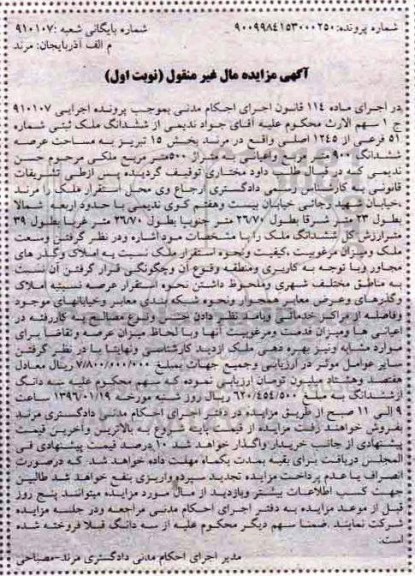 شماره پرونده: ۹۰۰۹۹۸۴۱۵۳۰۰۰۲۵۰ شماره بایگانی شعبه: ۹۱۰۱۰۷
م الف آذربایجان: مرند
آگهی مزایده مال غیر منقول (نوبت اول)
در اجرای ماده ۱۱۴ قانون اجرای احکام مدنی بموجب پرونده اجرایی ۹۱۰۱۰۷
ج ۱ سهم الارث محکوم علیه آقای جواد ندیمی از ششدانگ ملک ثبتی شماره
۵۱ فرعی از ۱۲۴۵ اصلی واقع در مرند بخش ۱۵ تبریز به مساحت عرصه
ششدانگ ۹۰۰ متر مربع واعیانی به متراژ ۵۰۰ متر مربع ملکی مرحوم حسن
ندیمی که در قبال طلب داود مختاری توقیف گردیده پس ازطی تشریفات
قانونی به کارشناس رسمی دادگستری ارجاع وی محل استقرار ملک را مرند
خیابان شهید رجائی خیابان بیست وهفتم کوی ندیمی با حدود اربعه شمالا
بطول ۲۳ متر شرقا بطول ۲۶/۷۰ متر جنوبا بطول ۲۶/۷۰ متر غربا بطول ۳۹
متر ارزش کل ششدانگ ملک را با مشخصات مورد اشاره ودر نظر گرفتن وسعت
ملک ومیزان مرغوبیت ،کیفیت ونحوه استقرار ملک نسبت به املاک وگذر های
مجاور وبا توجه به کاربری ومنطقه وقوع آن وچگونگی قرار گرفتن آن نسبت
به مناطق مختلف شهری وملحوظ داشتن نحوه استقرار عرصه نسبت به املاک
وگذرهای وعرض معابر همجوار ونحوه شبکه بندی معابر وخیابانهای موجود
وفاصله از مراکز خدماتی وبامد نظر دادن جنس ونوع مصالح به کاررفته در
اعیانی ها ومیزان قدمت ومرغوبیت آنها وبا لحاظ میزان عرضه وتقاضا برای
موارد مشابه ونیز بهره دهی ملک ازدید کارشناسی ونهایتا با در نظر گرفتن
سایر عوامل موثر در ارزیابی وجمیع جهات بمبلغ ۷/۸۰۰/۰۰۰/۰۰۰ ریال معادل
هفتصد وهشتاد میلیون تومان ارزیابی نموده که سهم محکوم علیه سه دانگ
ازششدانگ به مبلغ ۶۲۰/۴۵۴/۵۰۰ ریال روز شنبه مورخه ۱۳۹۶/۰۱/۱۹ ساعت
۹ الی ۱۱ صبح از طریق مزایده در دفتر اجرای احکام مدنی دادگستری مرند
بفروش خواهند رفت مزایده از قیمت پایه شروع به بالاترین وآخرین قیمت
پیشنهادی از جانب خریدار واگذار خواهد شد ۱۰ درصد قیمت پیشنهادی فی
المجلس دریافت وبرای بقیه بمدت یکماه مهلت داده خواهد شد که درصورت
انصراف یا عدم پرداخت مزایده تجدید سپرده واریزی بنفع خواهد شد طالبین
جهت کسب اطلاعات بیشتر وبازدید از مال مورد مزایده میتوانند پنج روز
قبل از موعد مزایده به دفتر اجرای احکام مدنی مراجعه ودر جلسه مزایده
شرکت نمایند .ضمنا سهم دیگر محکوم علیه از سه دانگ قبلا فروخته شده
است.
مدیر اجرای احکام مدنی دادگستری مرند-مصباحی